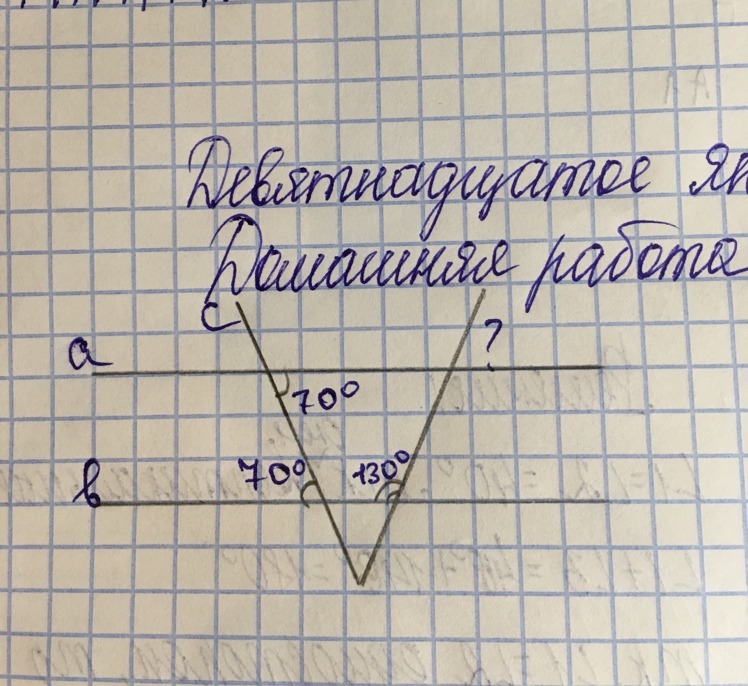 Девятнадцатое
Домашняя работа
с
а ?
70°
в 70° 130°